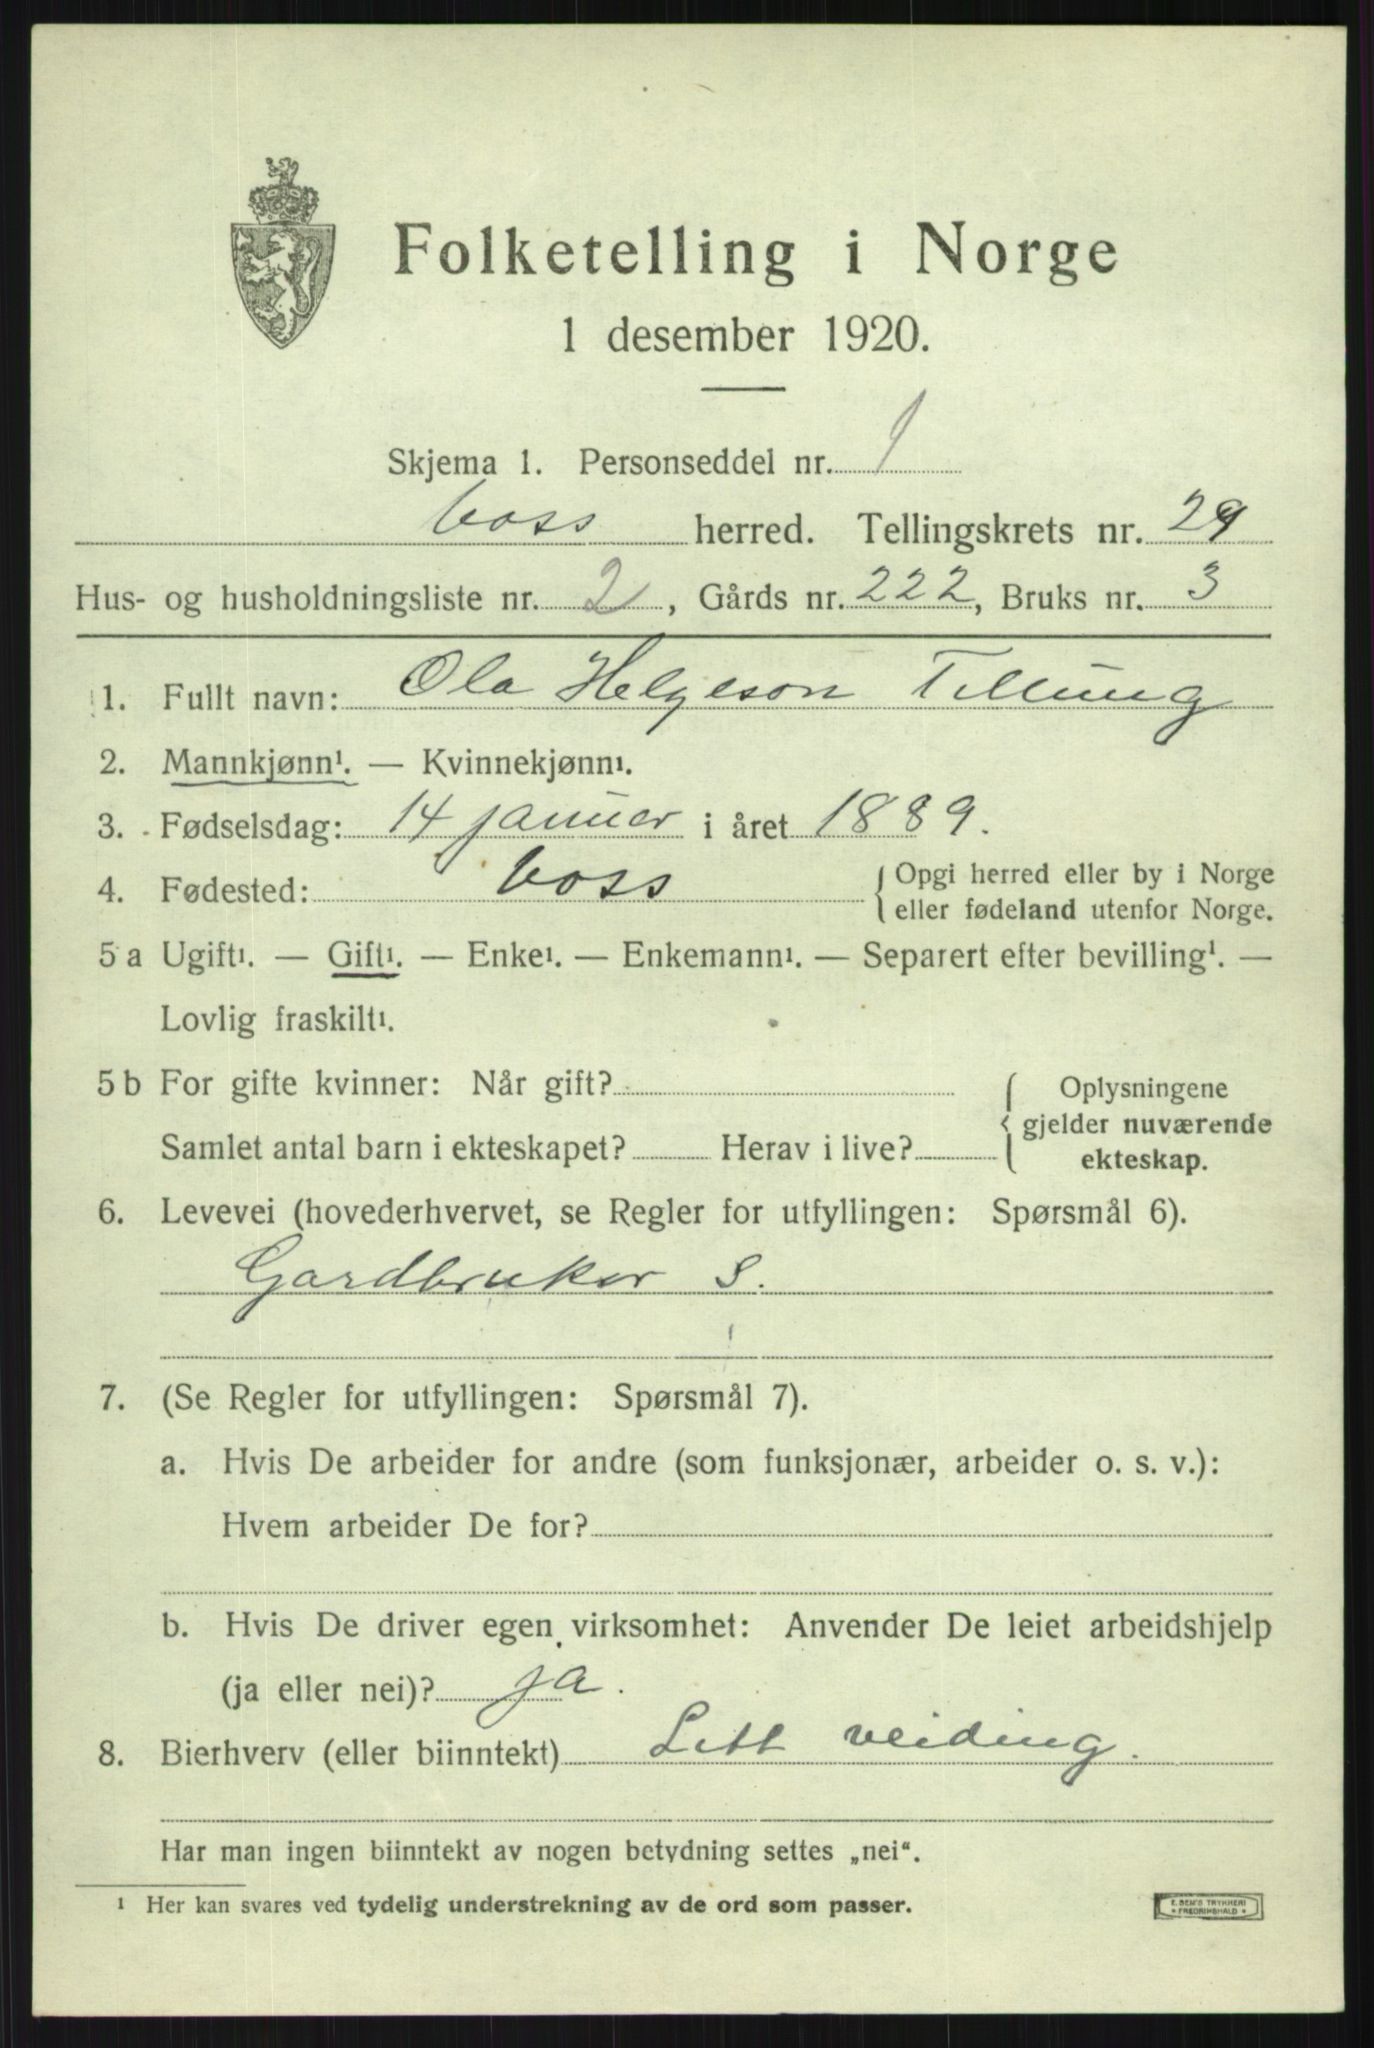 Folketelling i Norge
1 desember 1920.
Skjema 1. Personseddel nr. 1
Voss herred. Tellingskrets nr. 29
Hus- og husholdningsliste nr. 2, Gårds nr. 222, Bruks nr. 3
1. Fullt navn: Ola Helgeson Tillung
2. Mannkjønn¹. — Kvinnekjønn¹.
3. Fødselsdag: 14 januar i året 1889.
4. Fødested: Voss {Opgi herred eller by i Norge
eller fødeland utenfor Norge.
5 a Ugift¹. — Gift¹. — Enke¹. — Enkemann¹. — Separert efter bevilling¹. —
Lovlig fraskilt¹.
5 b For gifte kvinner: Når gift? {Oplysningene
gjelder nuværende
Samlet antal barn i ekteskapet? Herav i live?
ekteskap.
6. Levevei (hovederhvervet, se Regler for utfyllingen: Spørsmål 6).
Gardbruker S.
7. (Se Regler for utfyllingen: Spørsmål 7).
a. Hvis De arbeider for andre (som funksjonær, arbeider o. s. v.):
Hvem arbeider De for?
b. Hvis De driver egen virksomhet: Anvender De leiet arbeidshjelp
(ja eller nei)? ja.
8. Bierhverv (eller biinntekt) Litt veiding.
Har man ingen biinntekt av nogen betydning settes „nei“.
¹ Her kan svares ved tydelig understrekning av de ord som passer.
E. SEM'S TRYKKERI
FREDRIKSHALD